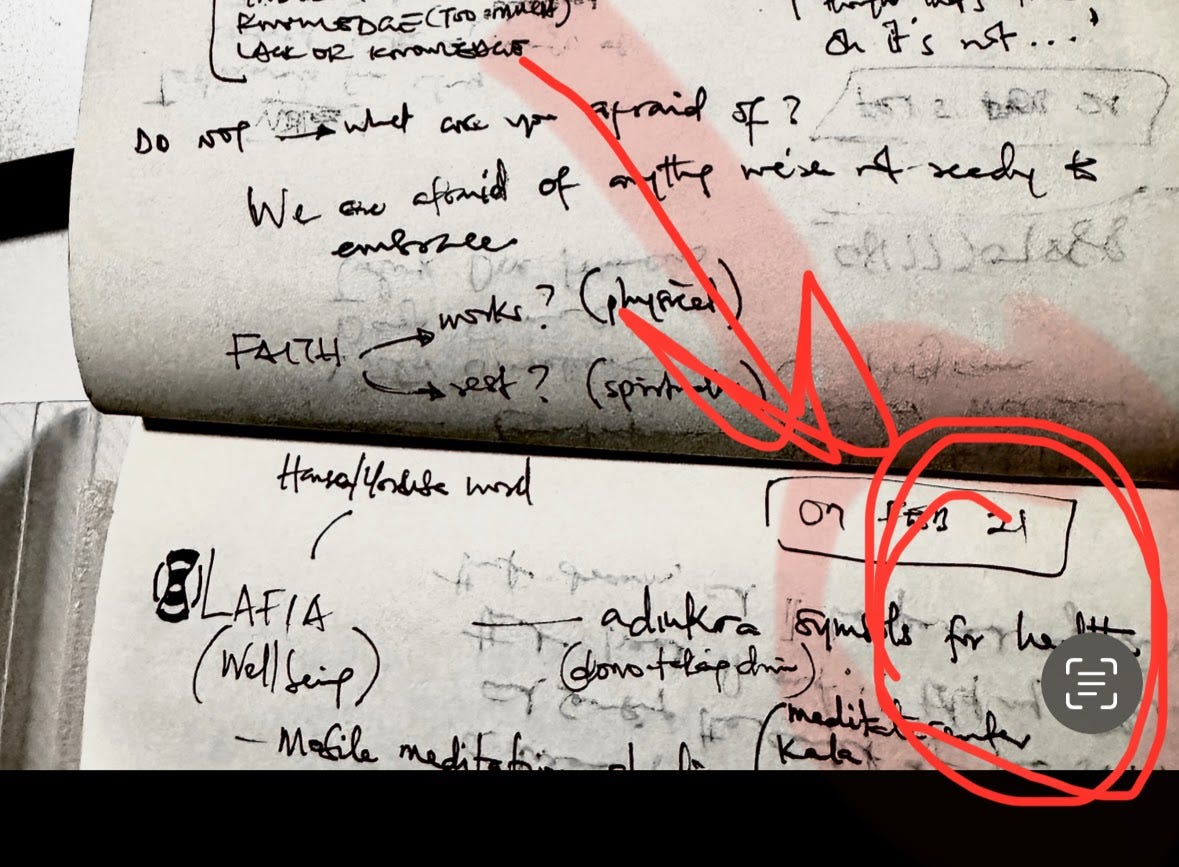 KNOWLEDGE (TOO MUCH)
LACK OR KNOWLEDGE
Oh it's not...
DO NOT → what are you afraid of?
We are afraid of anything we're not ready to
embrace
FAITH → works? (physical)
→ rest? (spiritual)
Hausa/Yoruba word
07 FEB 21
LAFIA — adinkra symbols for health.
(Wellbeing)
- Mobile meditation
meditation
Kala